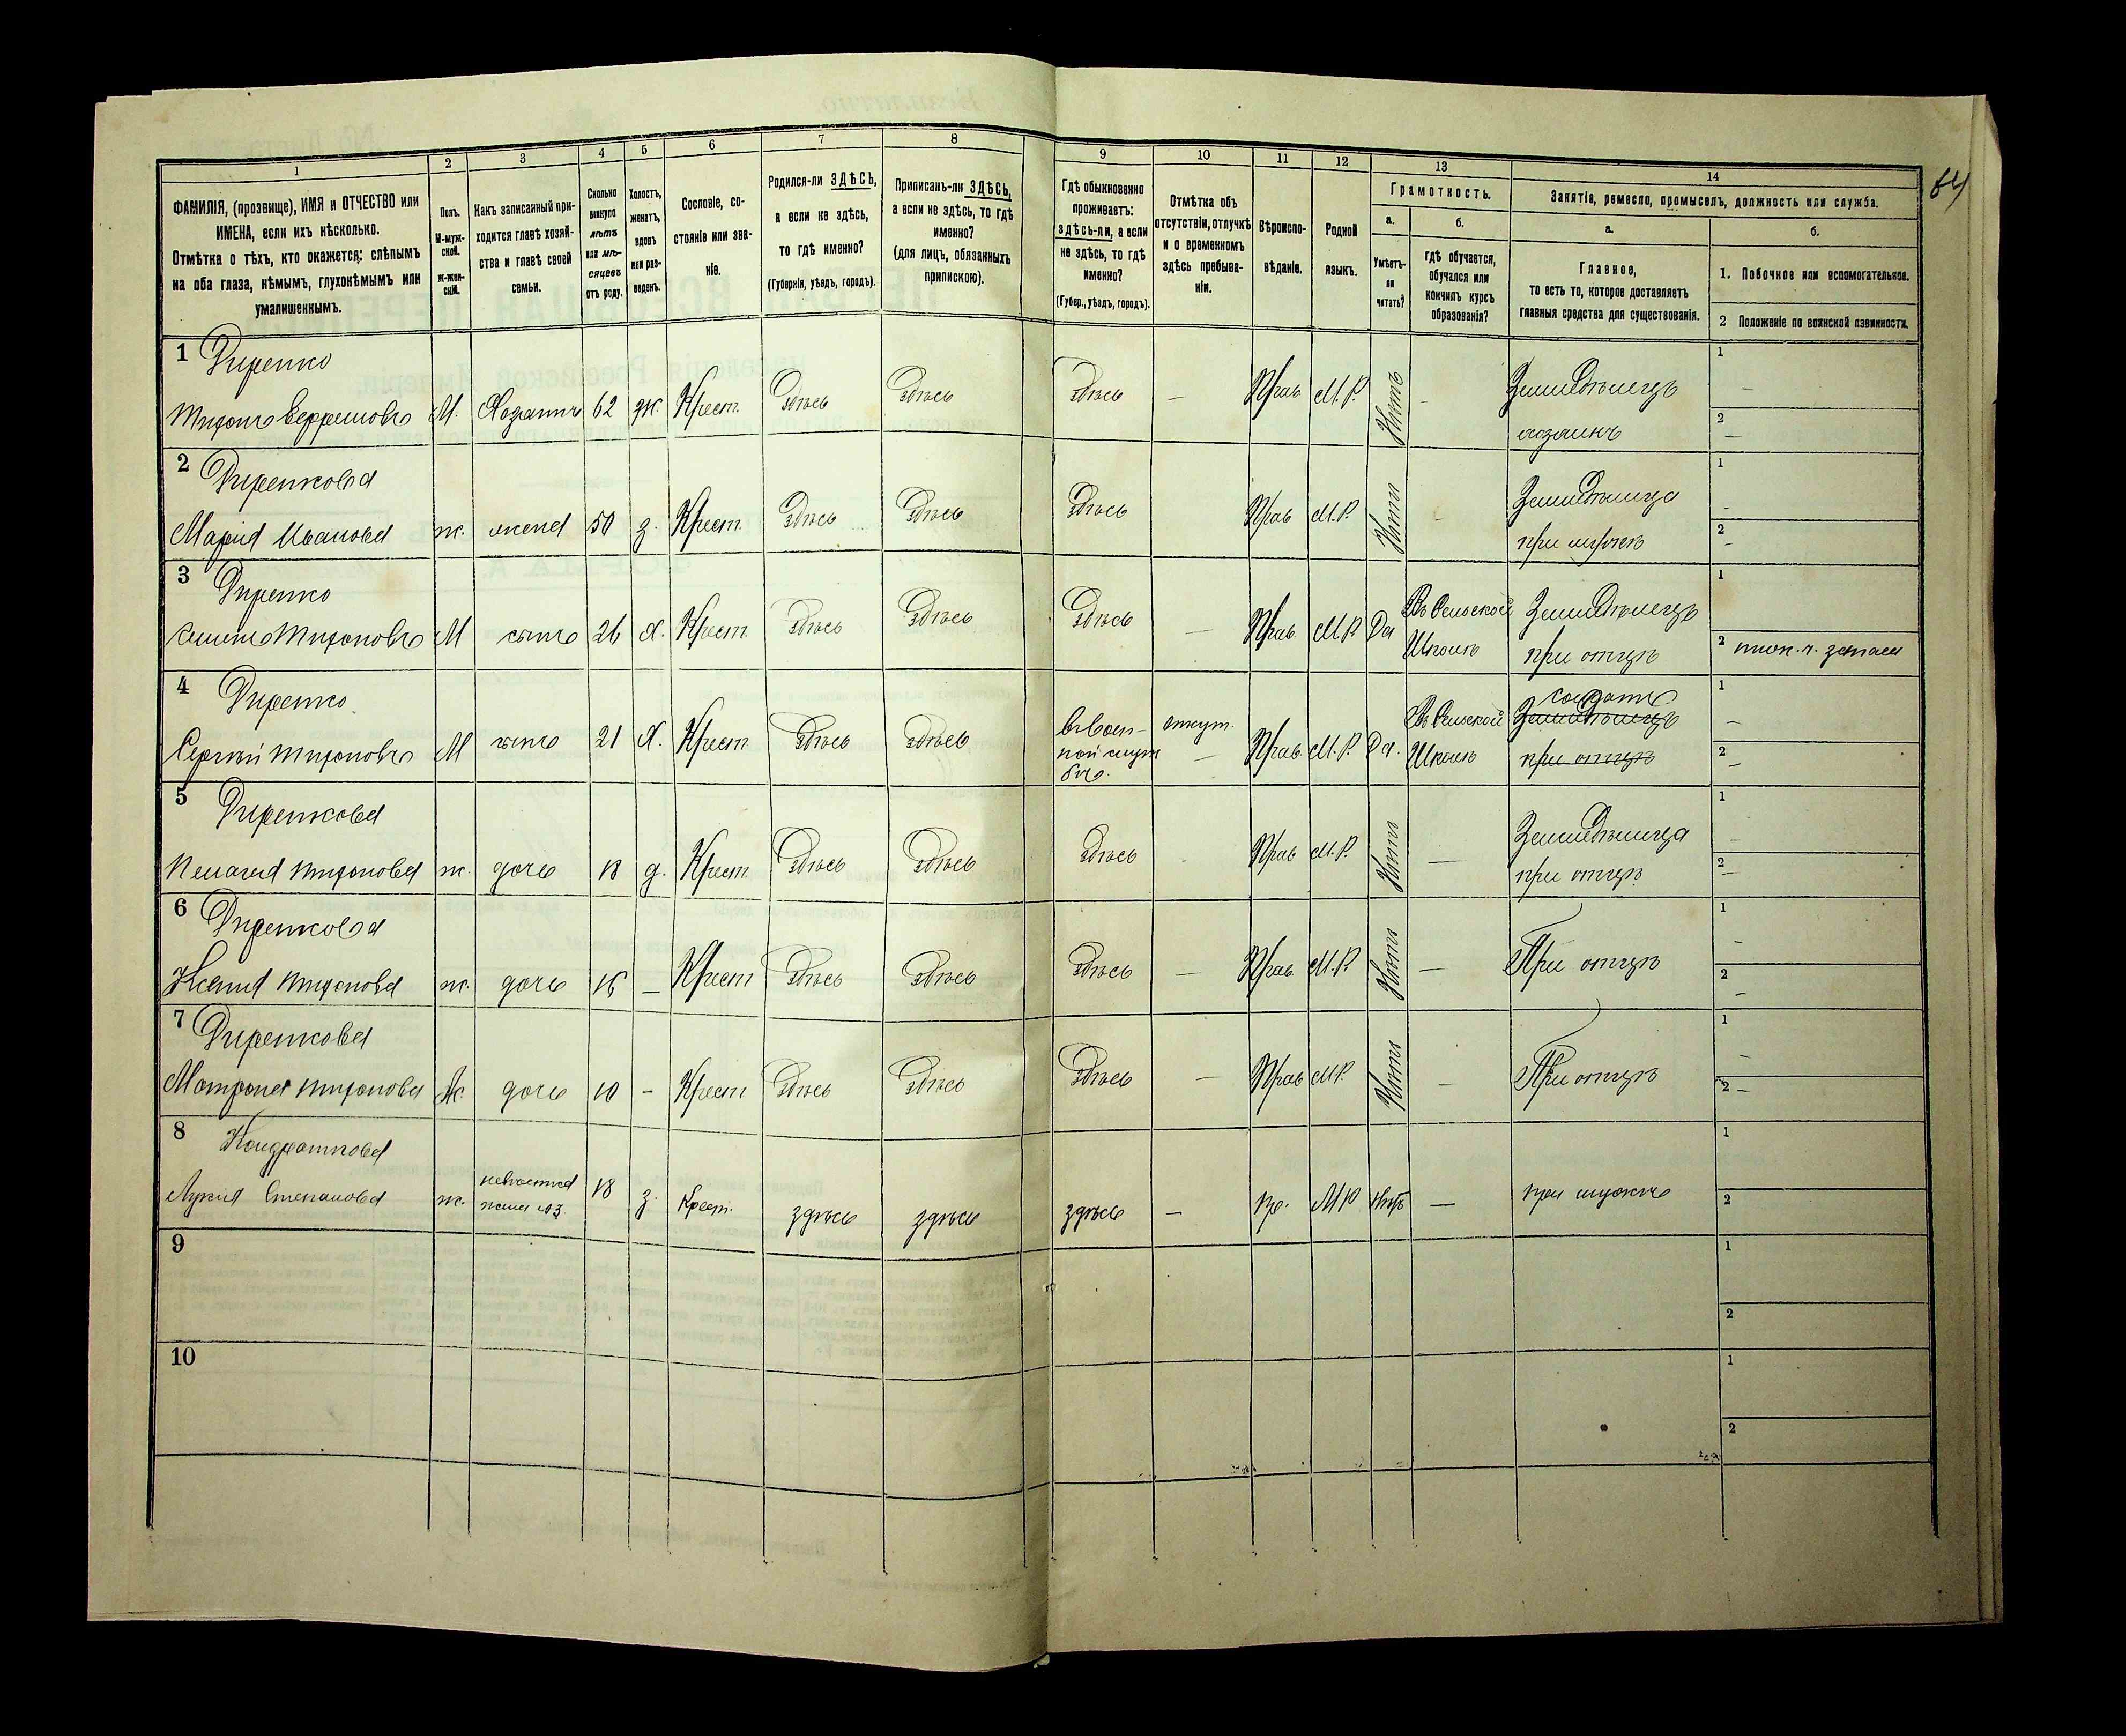 64
1 2 3 4 5 6 7 8 9 10 11 12 13 14
ФАМИЛІЯ, (прозвище), ИМЯ и ОТЧЕСТВО или
ИМЕНА, если ихъ нѣсколько.
Отмѣтка о тѣхъ, кто окажется: слѣпымъ
на оба глаза, нѣмымъ, глухонѣмымъ или
умалишеннымъ.
Полъ.
М-муж-
ской.
Ж-жен-
скій.
Какъ записанный при-
ходится главѣ хозяй-
ства и главѣ своей
семьи.
Сколько
минуло
лѣтъ
или мѣ-
сяцевъ
отъ роду.
Холостъ,
женатъ,
вдовъ
или раз-
веденъ.
Сословіе, со-
стояніе или зва-
ніе.
Родился-ли ЗДѢСЬ,
а если не здѣсь,
то гдѣ именно?
(Губернія, уѣздъ, городъ).
Приписанъ-ли ЗДѢСЬ,
а если не здѣсь, то гдѣ
именно?
(для лицъ, обязанныхъ
припискою).
Гдѣ обыкновенно
проживаетъ:
здѣсь-ли, а если
не здѣсь, то гдѣ
именно?
(Губер., уѣздъ, городъ).
Отмѣтка объ
отсутствіи, отлучкѣ
и о временномъ
здѣсь пребыва-
ніи.
Вѣроиспо-
вѣданіе.
Родной
языкъ.
Грамотность.
а.
Умѣетъ-
ли
читать?
б.
гдѣ обучается,
обучался или
кончилъ курсъ
образованія?
Занятія, ремесло, промыселъ, должность или служба.
а.
Главное,
то есть то, которое доставляетъ
главныя средства для существованія.
б.
1. Побочное или вспомогательное.
2 Положеніе по воинской повинности.
1 Диренко
М. Хозяинъ 62 ж. Крест. здѣсь здѣсь здѣсь — Прав М.Р. Нѣтъ - Земледѣлецъ
хозяинъ
1 —
2 —
2 Диренкова
Марія Иванова ж. жена 50 з. Крест. здѣсь здѣсь здѣсь Прав М.Р. Нѣтъ - Земледѣлица
при мужѣ
1 -
2 -
3 Диренко
М сынъ 26 Х. Крест. здѣсь здѣсь здѣсь — Прав М.Р. Да Въ Сельской Земледѣлецъ
Школѣ при отцѣ
1
2
4 Диренко
Сергѣй М сынъ 21 Х. Крест. здѣсь здѣсь — Прав М.Р. Да. Въ Сельской солдатъ
Школѣ Земледѣлецъ
при отцѣ
1 —
2 —
5 Диренкова
ж. дочь 18 д. Крест. здѣсь здѣсь здѣсь Прав М.Р. Нѣтъ — Земледѣлица
при отцѣ
1 —
2 —
6 Диренкова
ж. дочь — Крест здѣсь здѣсь здѣсь — Прав. М.Р. Нѣтъ — При отцѣ
1 -
2 -
7 Диренкова
Ж. дочь 10 - Крест здѣсь здѣсь здѣсь — Прав М.Р. Нѣтъ - При отцѣ
1 -
2 —
8 Кондраткова
Степанова ж. невѣстка 18 з. Крест. здѣсь здѣсь здѣсь — пр. М Р нѣтъ —
жена №3.
1
2
9
1
2
10
1
2